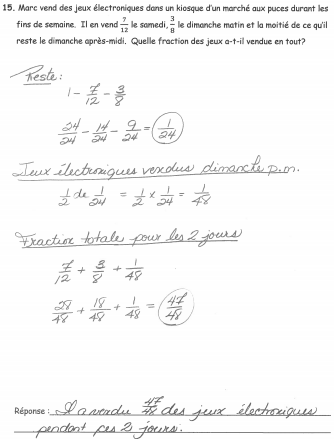 15. Marc vend des jeux électroniques dans un kiosque d'un marché aux puces durant les
fins de semaine. Il en vend 7/12 le samedi, 3/8 le dimanche matin et la moitié de ce qu'il
reste le dimanche après-midi. Quelle fraction des jeux a-t-il vendue en tout?
Reste:
1 - 7/12 - 3/8
24/24 - 14/24 - 9/24 = 1/24
Jeux électroniques vendus dimanche p.m.
1/2 de 1/24 = 1/2 x 1/24 = 1/48
Fraction totale pour les 2 jours
7/12 + 3/8 + 1/48
28/48 + 18/48 + 1/48 = 47/48
Réponse : Il a vendu 47/48 des jeux électroniques
pendant ces 2 jours.